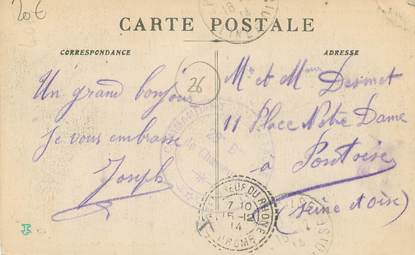 20€
CARTE POSTALE
CORRESPONDANCE
ADRESSE
26
Un grand bonjour
Je vous embrasse
Joseph
Mr et Mme Desmet
11 Place Notre Dame
à Pontoise
(Seine et Oise)
NEUF DU RHONE
7-10
15-12
14
DROME